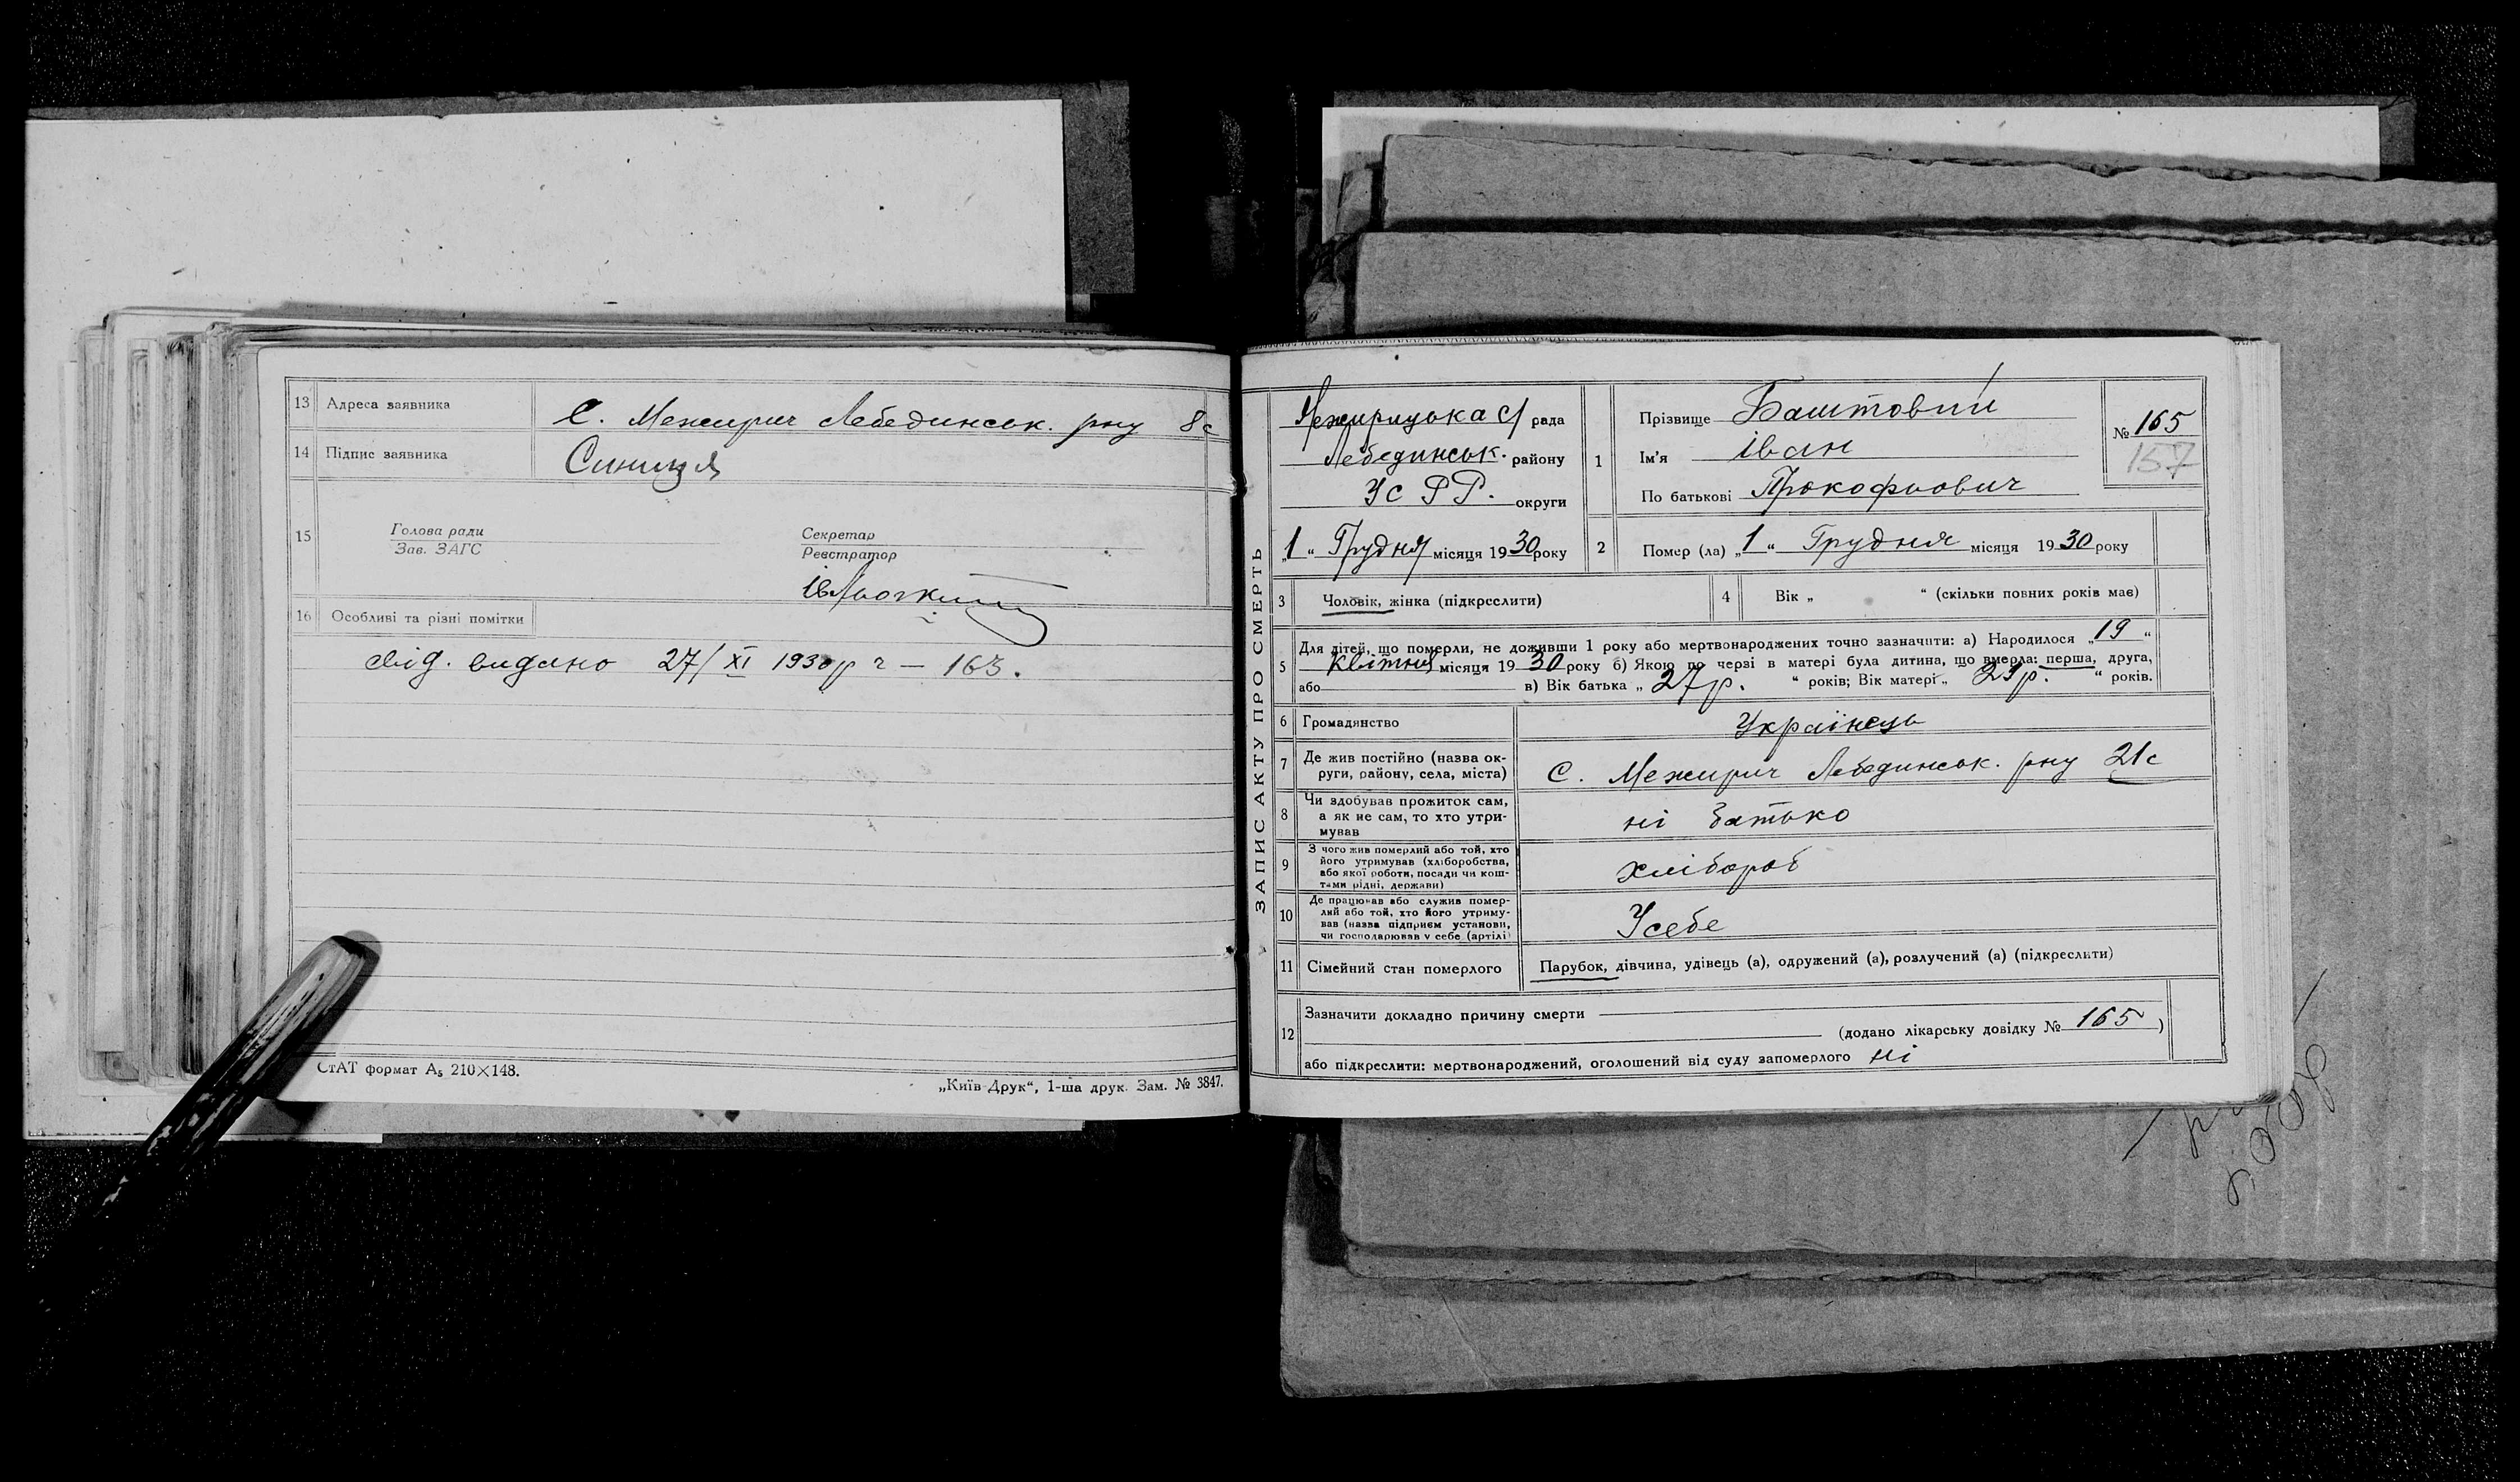 13 Адреса заявника С. Межирич Лебединськ. рну 8с
14 Підпис заявника Синиця
15 Голова ради
Зав. ЗАГС
Секретар
Реєстратор
16 Особливі та різні помітки
свід. видано 27/XI 1930 р ч — 163.
СтАТ формат А₅ 210×148.
„Київ-Друк“, 1-ша друк. Зам. № 3847.
ЗАПИС АКТУ ПРО СМЕРТЬ
Межирицька с/ рада
Лебединськ. району
УСРР. округи
„1“ Грудня місяця 1930 року
1 Прізвище Баштовий
Ім'я Іван
По батькові Прокофьович
№ 165
157
2 Помер (ла) „1“ Грудня місяця 1930 року
3 Чоловік, жінка (підкреслити)
4 Вік „ “ (скільки повних років має)
5 Для дітей, що померли, не доживши 1 року або мертвонароджених точно зазначити: а) Народилося „19“
Квітня місяця 1930 року б) Якою по черзі в матері була дитина, що вмерла: перша, друга,
або в) Вік батька „27 р. “ років; Вік матері „ р. “ років.
6 Громадянство Українець
7 Де жив постійно (назва ок-
руги, району, села, міста) С. Межирич Лебединськ. рну 21с
8 Чи здобував прожиток сам,
а як не сам, то хто утри-
мував ні батько
9 З чого жив померлий або той, хто
його утримував (хліборобства,
або якої роботи, посади чи кош-
тами рідні, держави) хлібороб
10 Де працював або служив помер-
лий або той, хто його утриму-
вав (назва підприєм установи,
чи господарював у себе (артілі) Усебе
11 Сімейний стан померлого Парубок, дівчина, удівець (а), одружений (а), розлучений (а) (підкреслити)
12 Зазначити докладно причину смерти
(додано лікарську довідку № 165)
або підкреслити: мертвонароджений, оголошений від суду запомерлого ні